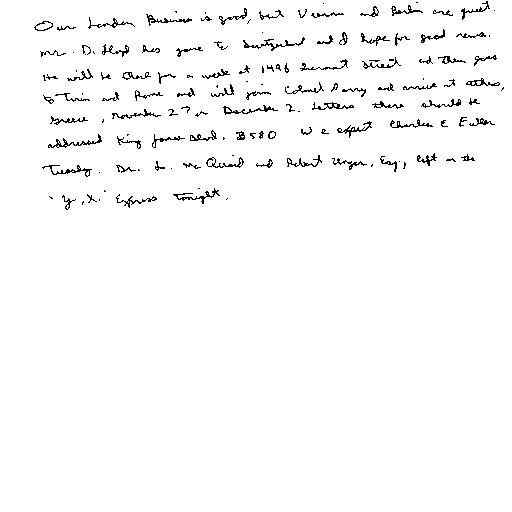 Our London Business is good, but Vienna and Berlin are quiet.
Mr. D. Lloyd has gone to Switzerland and I hope for good news.
He will be there for a week at 1496 Zermott Street and then goes
to Turin and Rome and will join Colonel Parry and arrive at Athens,
Greece, November 27 or December 2. Letters there should be
addressed King James Blvd. 3580 We expect Charles E Fuller
Tuesday. Dr. L. McQuaid and Robert Unger, Esq., left on the
"Y, X." Express tonight.